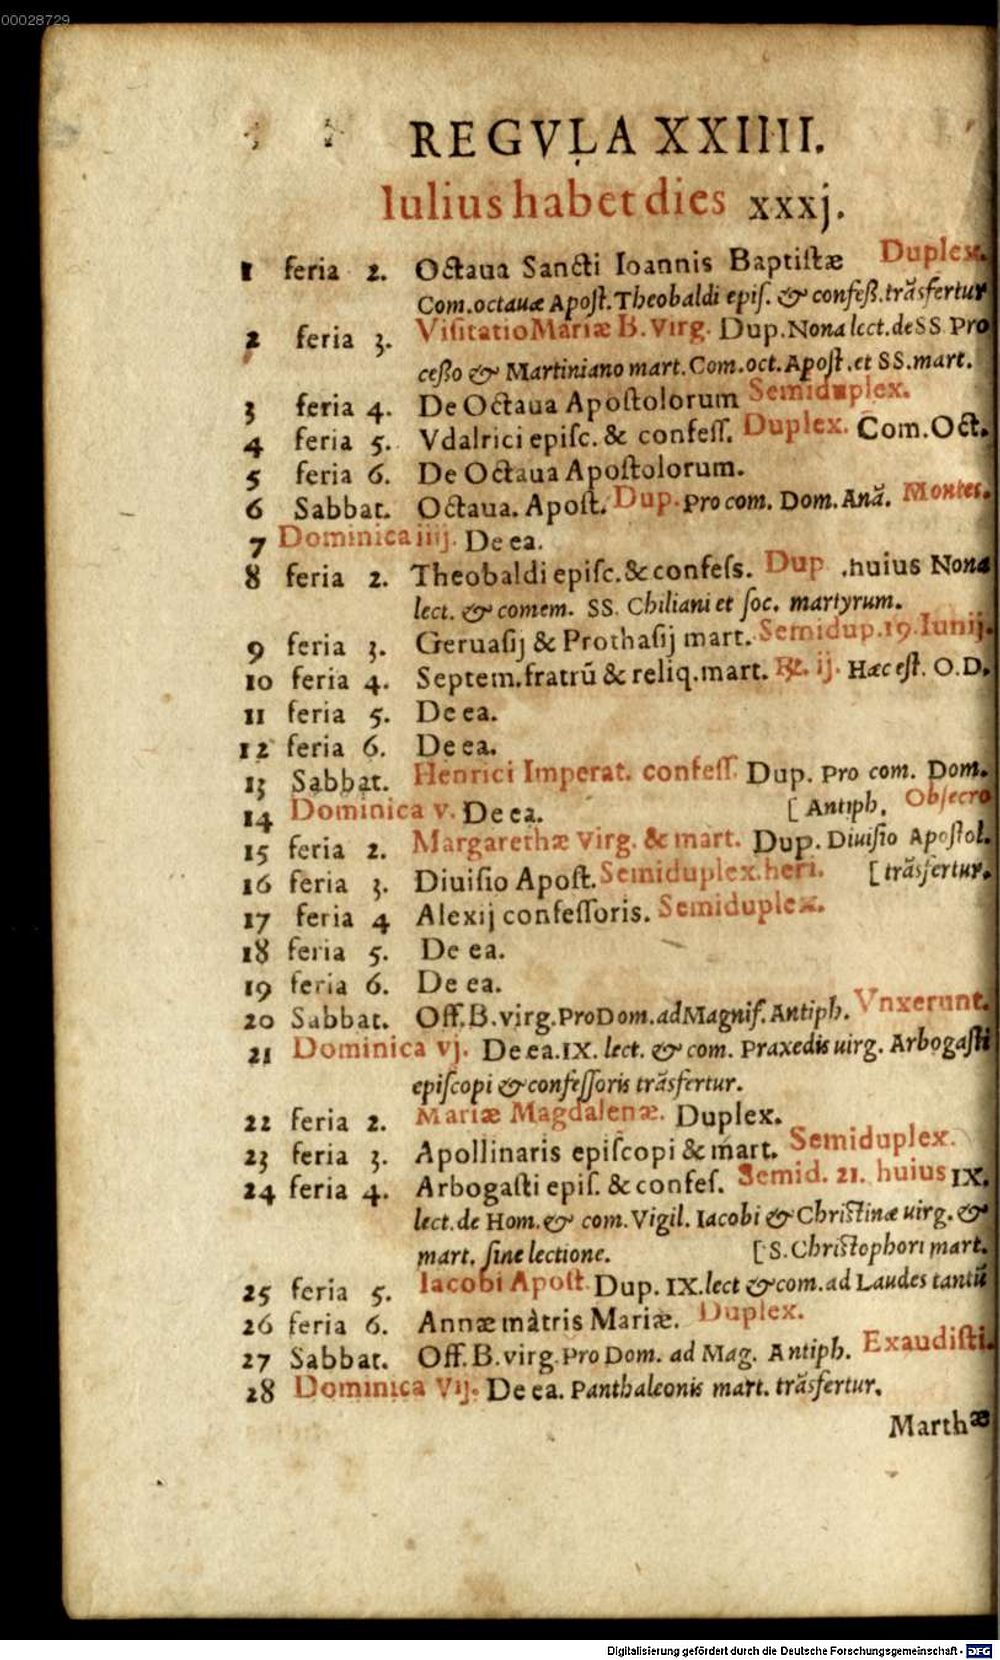 00028729
REGVLA XXIIII.
Iulius habet dies xxxj.
1 feria 2. Octaua Sancti Ioannis Baptistæ Duplex.
Com. octauæ Apost. Theobaldi epis. & confeß. trãsfertur
2 feria 3. Visitatio Mariæ B. Virg. Dup. Nona lect. de SS. Pro
ceßo & Martiniano mart. Com. oct. Apost. et SS. mart.
3 feria 4. De Octaua Apostolorum Semiduplex.
4 feria 5. Vdalrici episc. & confess. Duplex. Com. Oct.
5 feria 6. De Octaua Apostolorum.
6 Sabbat. Octaua. Apost. Dup. pro com. Dom. Anã. Montes.
7 Dominica iiij. De ea.
8 feria 2. Theobaldi episc. & confess. Dup. huius Nona
lect. & comem. SS. Chiliani et soc. martyrum.
9 feria 3. Geruasij & Prothasij mart. Semidup. 19. Iunij.
10 feria 4. Septem. fratrũ & reliq. mart. ℞. ij. Hæc est. O.D.
11 feria 5. De ea.
12 feria 6. De ea.
13 Sabbat. Henrici Imperat. confess. Dup. pro com. Dom.
14 Dominica v. De ea. [Antiph. Obsecro
15 feria 2. Margarethæ virg. & mart. Dup. Diuisio Apostol.
16 feria 3. Diuisio Apost. Semiduplex. heri. [trãsfertur.
17 feria 4 Alexij confessoris. Semiduplex.
18 feria 5. De ea.
19 feria 6. De ea.
20 Sabbat. Off. B. virg. Pro Dom. ad Magnif. Antiph. Vnxerunt.
21 Dominica vj. De ea. IX. lect. & com. Praxedis uirg. Arbogasti
episcopi & confessoris trãsfertur.
22 feria 2. Mariæ Magdalenæ. Duplex.
23 feria 3. Apollinaris episcopi & mart. Semiduplex.
24 feria 4. Arbogasti epis. & confes. Semid. 21. huius IX.
lect. de Hom. & com. Vigil. Iacobi & Christinæ uirg. &
mart. sine lectione. [S. Christophori mart.
25 feria 5. Iacobi Apost. Dup. IX. lect & com. ad Laudes tantũ
26 feria 6. Annæ màtris Mariæ. Duplex.
27 Sabbat. Off. B. virg. Pro Dom. ad Mag. Antiph. Exaudisti.
28 Dominica Vij. De ea. Panthaleonis mart. trãsfertur.
Marthæ
Digitalisierung gefördert durch die Deutsche Forschungsgemeinschaft - DFG